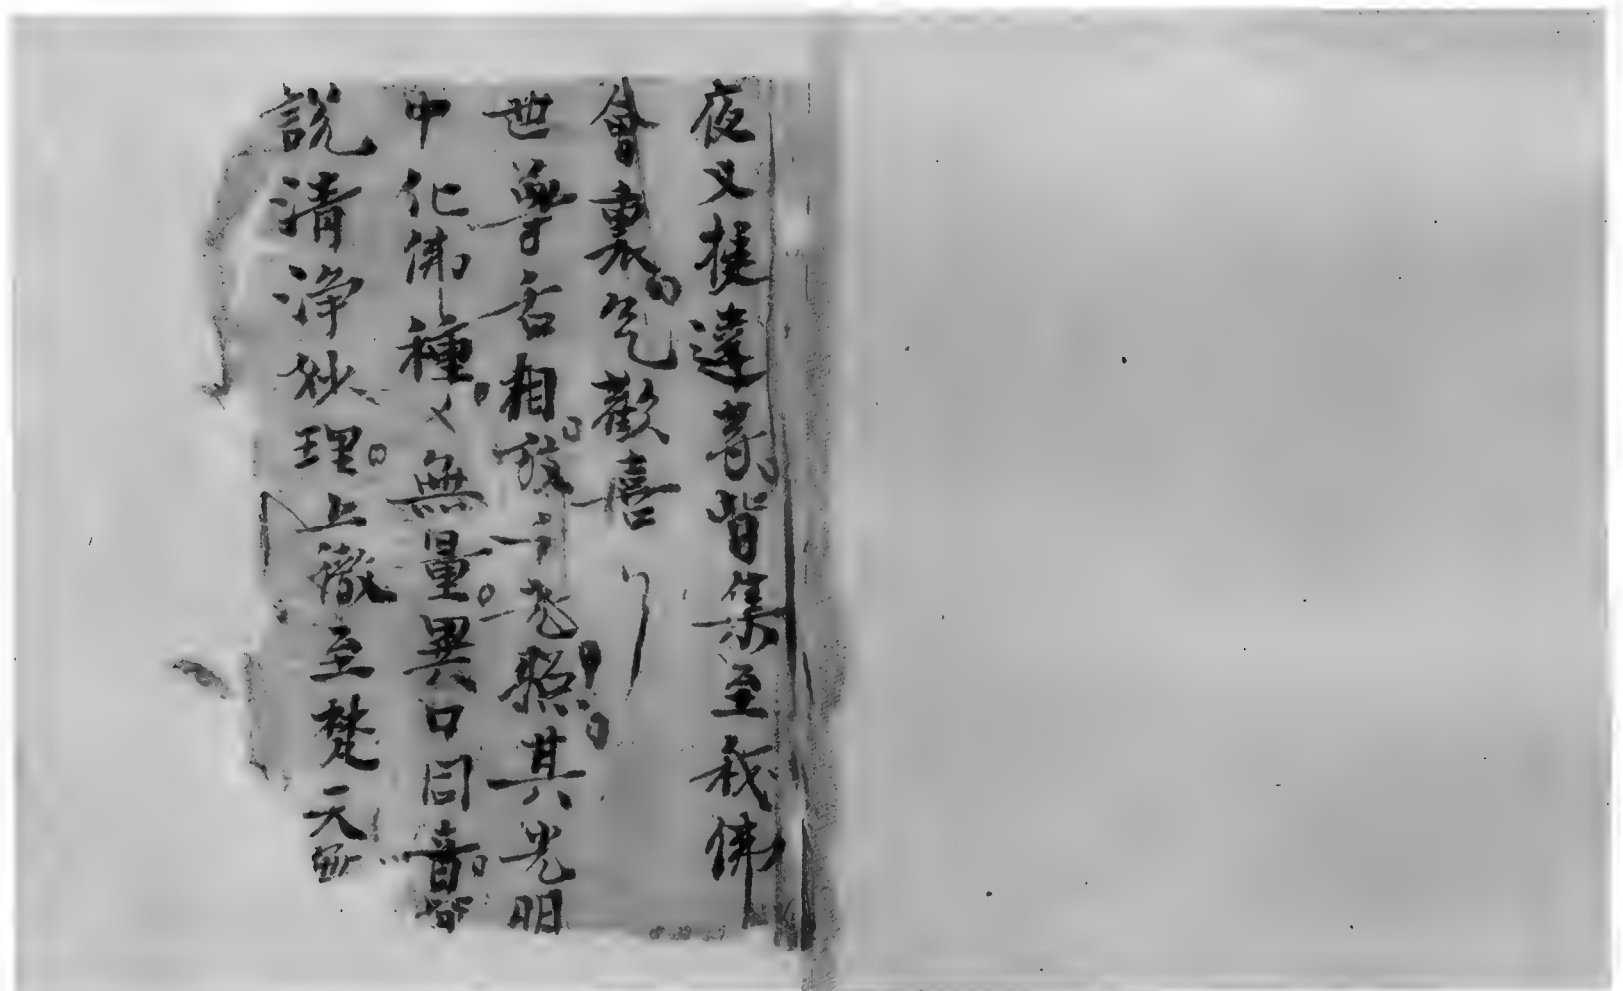 夜叉捷達等。皆集至我佛
會裏。氣歡喜
世尊舌相。放千光照。其光明
中化佛。種〻無量。異口同音。皆
說清淨妙理。上徹至梵天